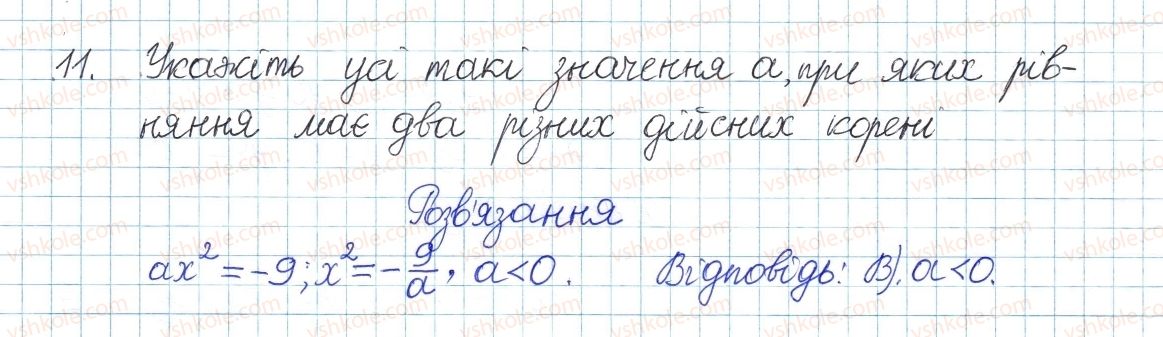 11. Укажіть усі такі значення a, при яких рів-
няння має два різних дійсних корені
Розв'язання
ax² = -9; x² = -9/a, a<0. Відповідь: В). a<0.